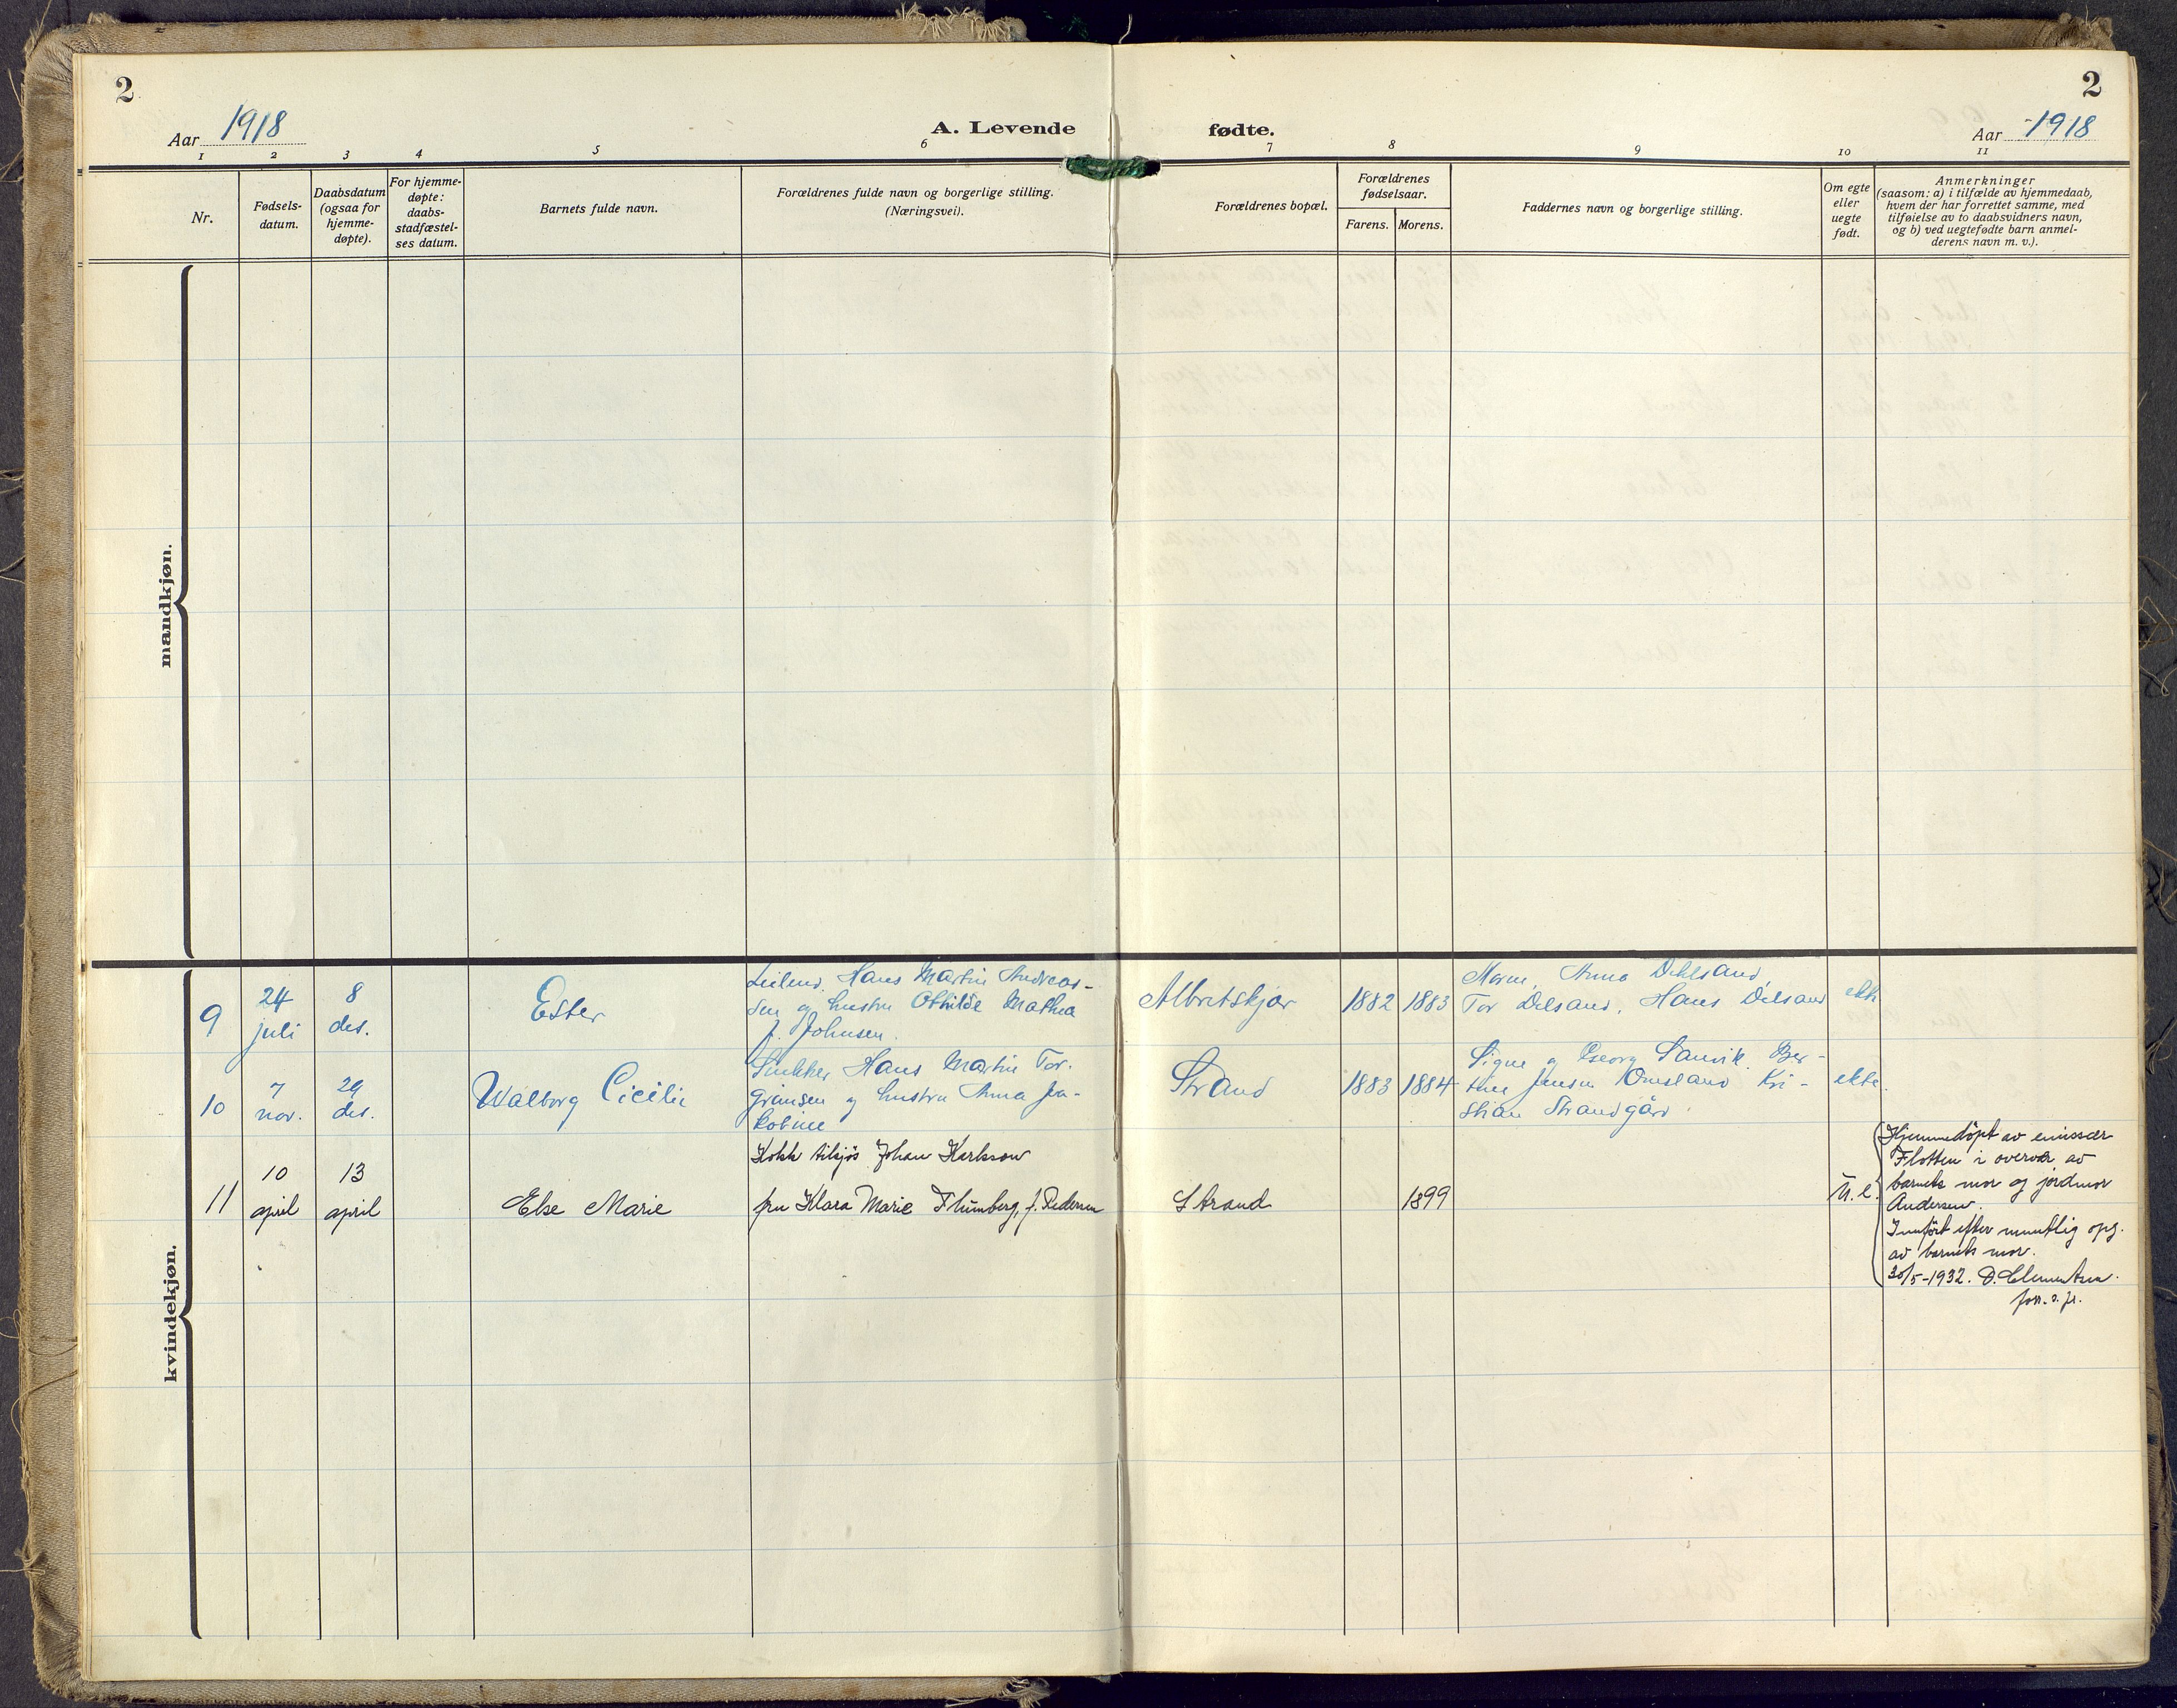 2
2
Aar 1918
A. Levende fødte.
Aar 1918
1 2 3 4 5 6 7 8 9 10 11
Nr.
Fødsels-
datum.
Daabsdatum
(ogsaa for
hjemme-
døpte).
For hjemme-
døpte:
daabs-
stadfæstel-
ses datum.
Barnets fulde navn.
Forældrenes fulde navn og borgerlige stilling.
(Næringsvei).
Forældrenes bopæl.
Forældrenes
fødselsaar.
Farens. Morens.
Faddernes navn og borgerlige stilling.
Om egte
eller
uegte
født.
Anmerkninger
(saasom: a) i tilfælde av hjemmedaab,
hvem der har forrettet samme, med
tilføielse av to daabsvidners navn,
og b) ved uegtefødte barn anmel-
derens navn m. v.).
mandkjøn.
kvindekjøn.
9
24
juli
8
des.
Ester
Hans Martin Andreas-
sen og hustru Othilde Mathea
f. Johnsen.
Albretskjær
1882
1883
Moren, Anna Dehlsand,
Tor Delsand, Hans Delsand
ekte
10
7
nov.
29
des.
Walborg Cicilie
Hans Martin Tor-
grimsen og hustru Anna Ja-
kobine
Strand
1883
1884
Signe og Georg Sanvik. Ber-
the Jensen Omsland Kri-
stian Strandgård.
ekte.
11
10
april
13
april
Else Marie
Kokk tilsjøs Johan Karlsson
fru Klara Marie Flumberg, f. Pedersen
Strand
1899
U. e.
Hjemmedöpt av emissær
Flotten i overvær av
barnets mor og jordmor
Andersen.
Innført efter muntlig opg.
av barnets mor.
30/5-1932. D. Clementsen.